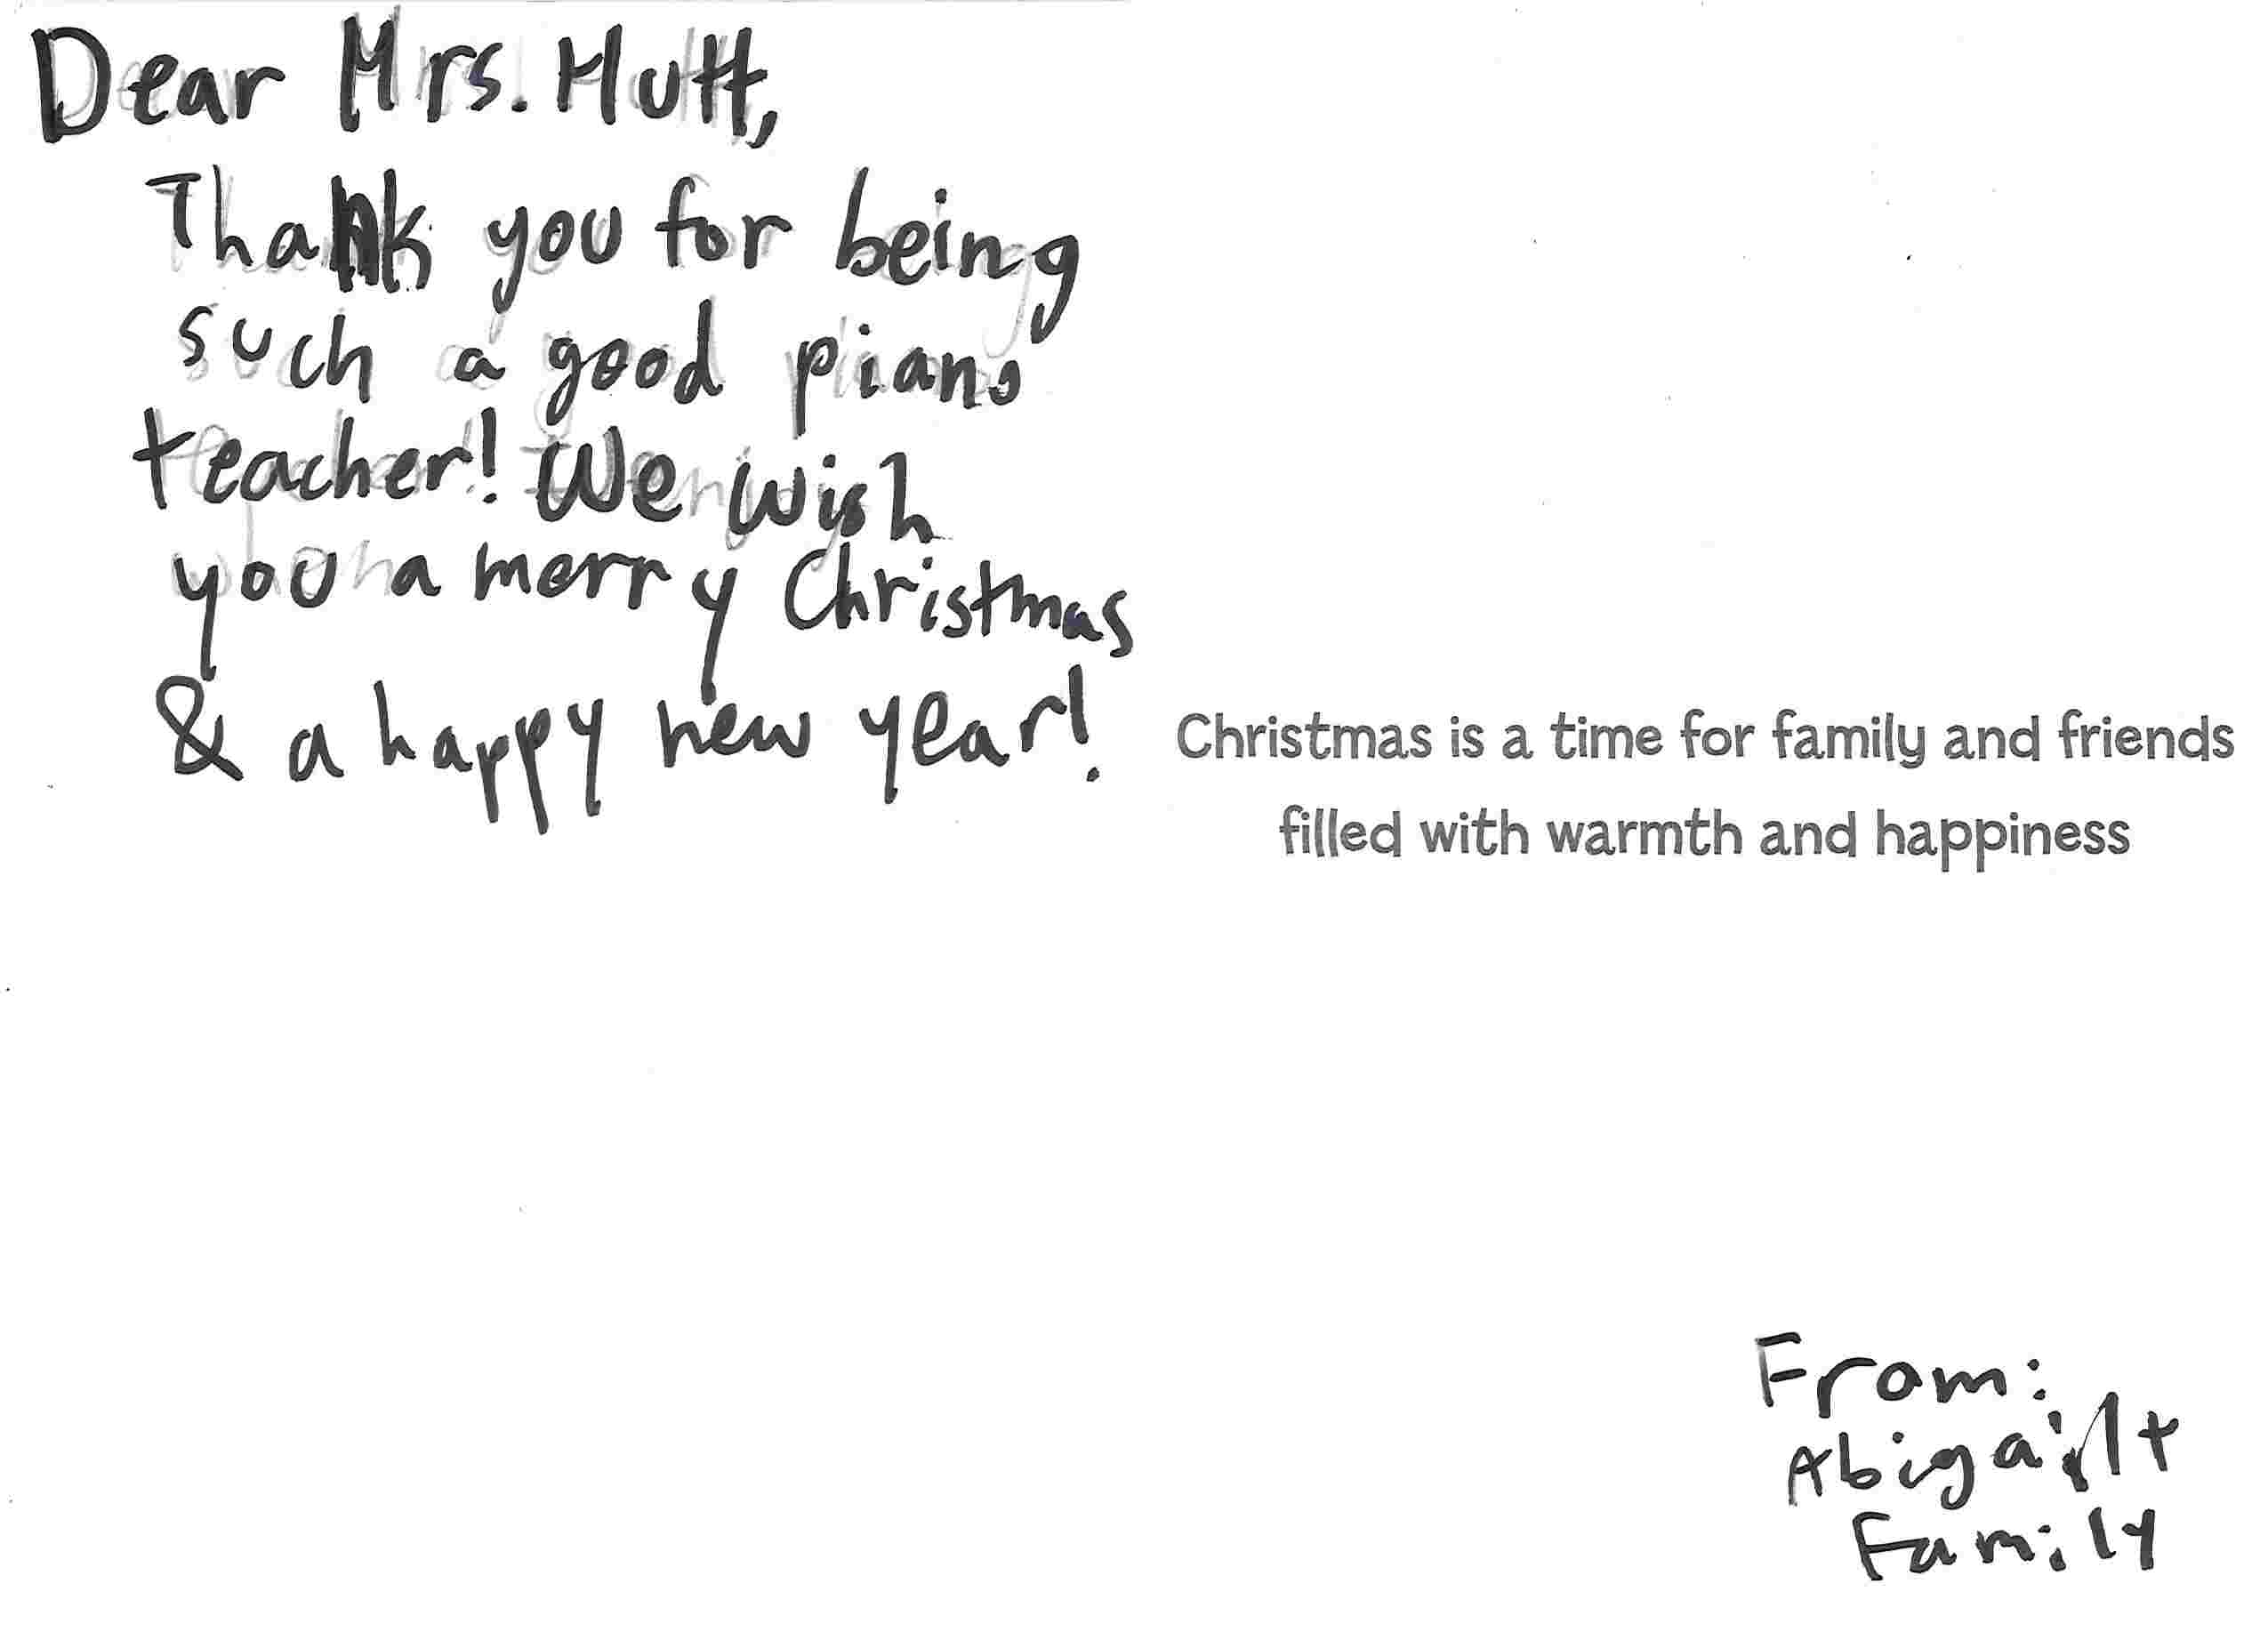 Dear Mrs. Hutt,
Thank you for being
such a good piano
teacher! We wish
you a merry Christmas
& a happy new year!
Christmas is a time for family and friends
filled with warmth and happiness
From:
Abigail +
Family